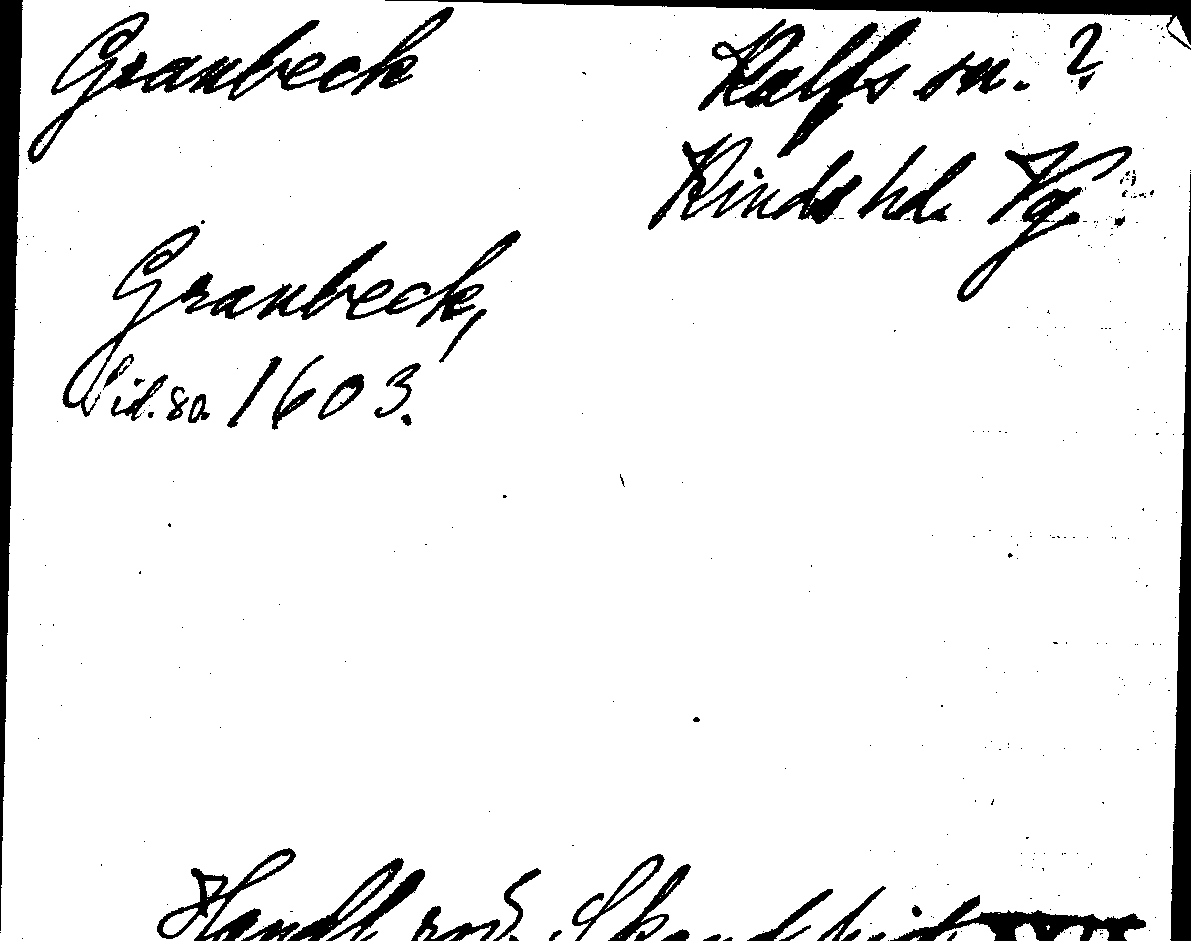 Granbeck Kalfs sn. ?
Kinds hd. Vg. ?
Granbeck,
1603.
Handl. rör. Skand. hist.